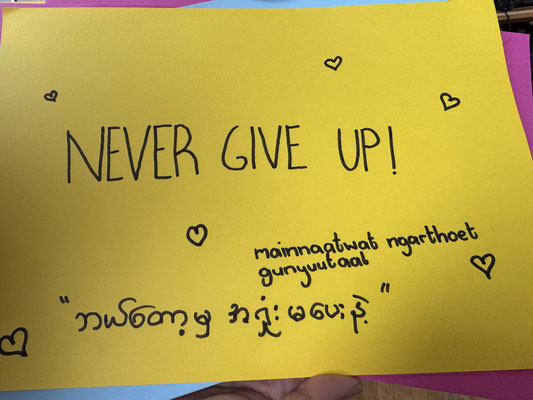 NEVER GIVE UP!
mainnaatwat ngarthoet
gunyuutaal
"ဘယ်တော့မှ အရှုံးမပေးနဲ့"